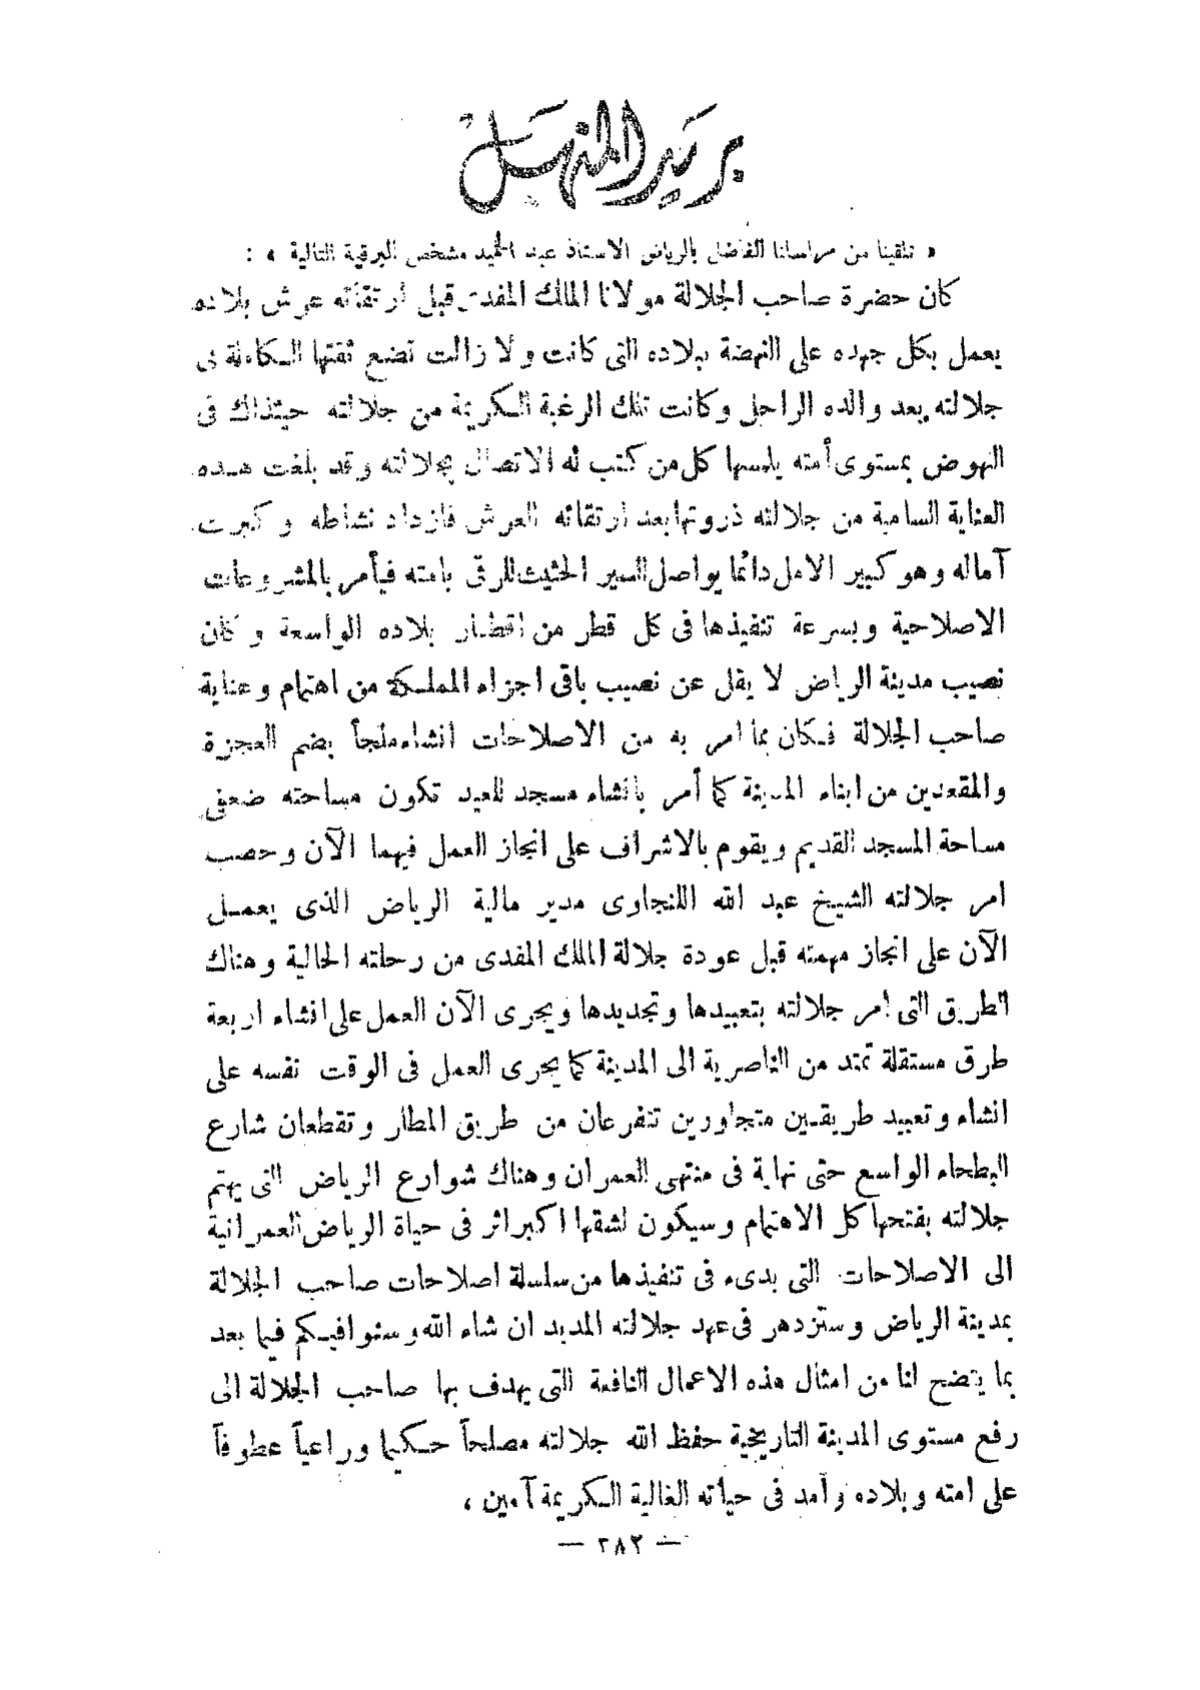 بريد المنهل
« تلقينا من مراسلنا الفاضل بالرياض الاستاذ عبد الحميد مشخص البرقية التالية » :
كان حضرة صاحب الجلالة مولانا الملك المفدى قبل ارتقائه عرش بلاده
يعمل بكل جهده على النهضة ببلاده التى كانت ولا زالت تضع ثقتها الكاملة فى
جلالته بعد والده الراحل وكانت تلك الرغبة الكريمة من جلالته حينذاك فى
النهوض بمستوى أمته يلمسها كل من كتب له الاتصال بجلالته وقد بلغت هذه
العناية السامية من جلالته ذروتها بعد ارتقائه العرش فازداد نشاطه وكبرت
آماله وهو كبير الامل دائما يواصل السير الحثيث للرقى بامته فيأمر بالمشروعات
الاصلاحية وبسرعة تنفيذها فى كل قطر من اقطار بلاده الواسعة وكان
نصيب مدينة الرياض لا يقل عن نصيب باقى اجزاء المملكة من اهتمام وعناية
صاحب الجلالة فكان مما امر به من الاصلاحات انشاء ملجأ يضم العجزة
والمقعدين من ابناء المدينة كما أمر بانشاء مسجد للعيد تكون مساحته ضعفى
مساحة المسجد القديم ويقوم بالاشراف على انجاز العمل فيهما الآن وحسب
امر جلالته الشيخ عبد الله اللنجاوى مدير مالية الرياض الذى يعمل
الآن على انجاز مهمته قبل عودة جلالة الملك المفدى من رحلته الحالية وهناك
الطريق التى امر جلالته بتعبيدها وتجديدها ويجرى الآن العمل على انشاء اربعة
طرق مستقلة تمتد من الناصرية الى المدينة كما يجرى العمل فى الوقت نفسه على
انشاء وتعبيد طريقين متجاورين تتفرعان من طريق المطار وتقطعان شارع
البطحاء الواسع حتى نهاية فى منتهى العمران وهناك شوارع الرياض التى يهتم
جلالته بفتحها كل الاهتمام وسيكون لشقها اكبر اثر فى حياة الرياض العمرانية
الى الاصلاحات التى بدىء فى تنفيذها من سلسلة اصلاحات صاحب الجلالة
بمدينة الرياض وستزدهر فى عهد جلالته المديد ان شاء الله وسنوافيكم فيما بعد
بما يتضح لنا من امثال هذه الاعمال النافعة التى يهدف بها صاحب الجلالة الى
رفع مستوى المدينة التاريخية حفظ الله جلالته مصلحاً حكيما وراعياً عطوفاً
على امته وبلاده وأمد فى حياته الغالية الكريمة آمين ،
— ٢٨٢ —